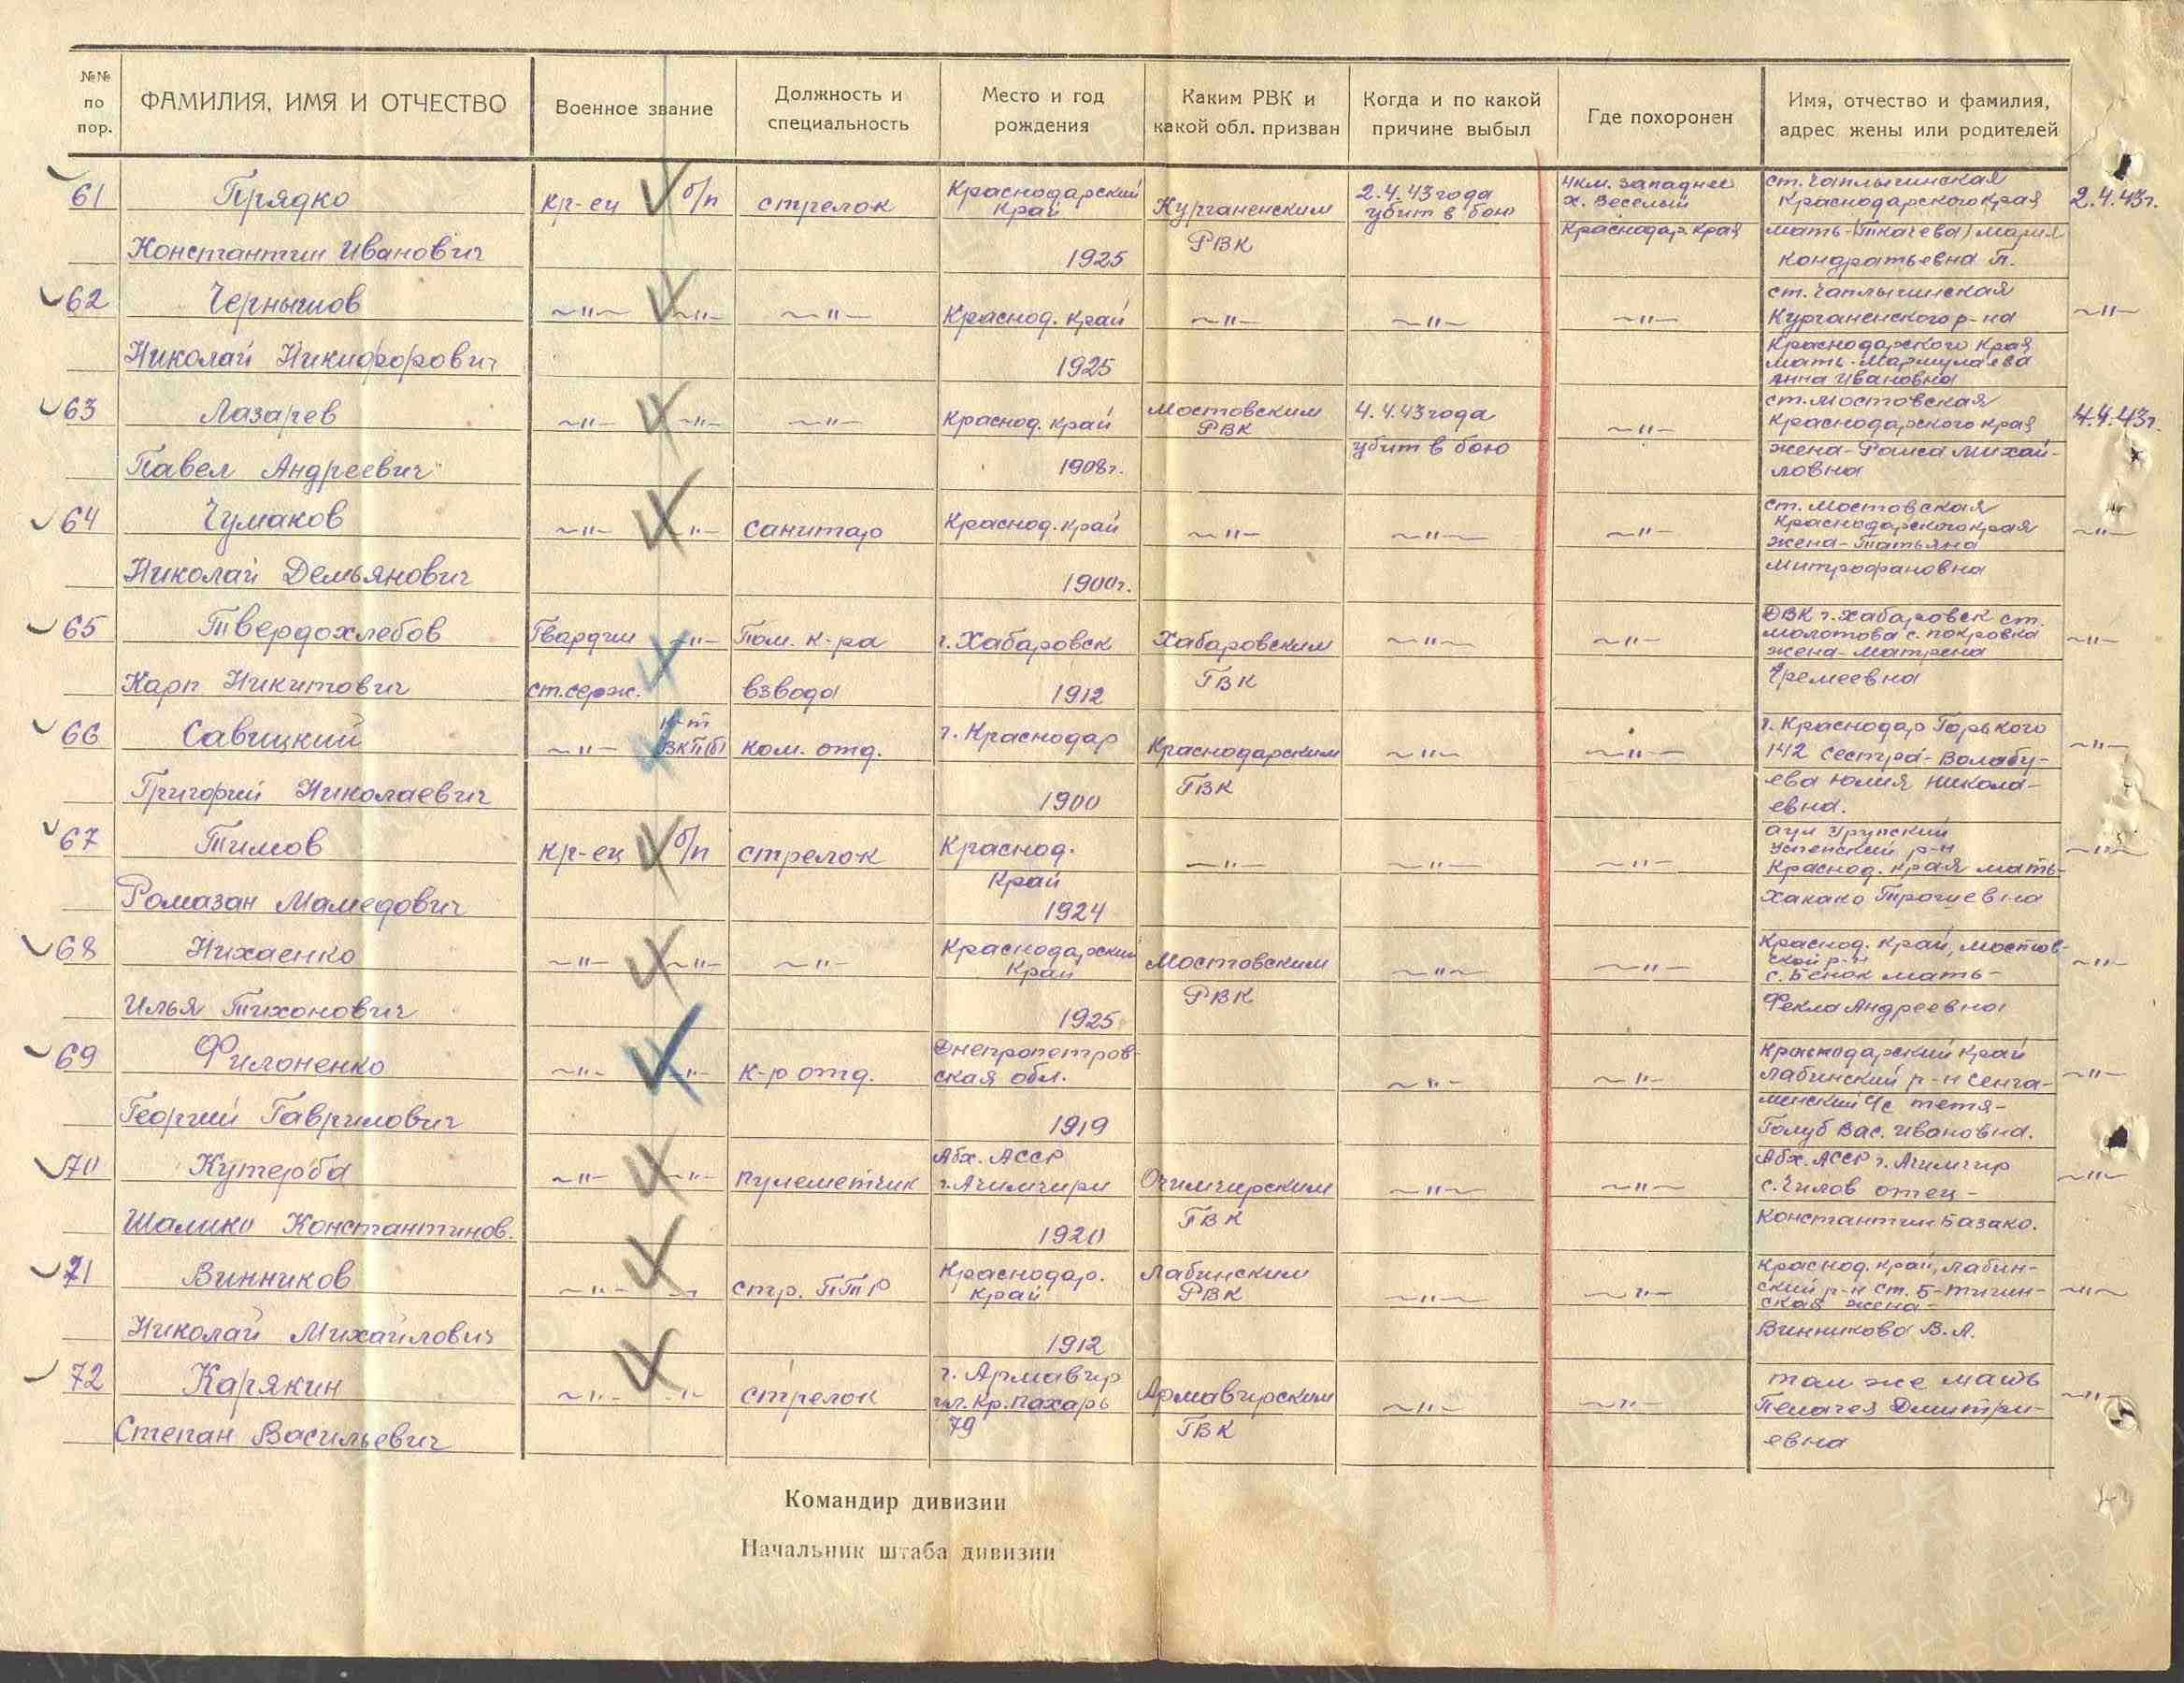 №№ по пор.
ФАМИЛИЯ, ИМЯ И ОТЧЕСТВО
Военное звание
Должность и специальность
Место и год рождения
Каким РВК и какой обл. призван
Когда и по какой причине выбыл
Где похоронен
Имя, отчество и фамилия, адрес жены или родителей
61 Прядко кр-ец б/п стрелок Краснодарский край Курганенским 2.4.43 года убит в бою 4 км. западнее х. Веселый ст. Чаплыгинская Краснодарского края 2.4.43г.
Константин Иванович 1925 РВК Краснодар. края мать-(Ткачева) Мария Кондратьевна П.
62 Чернышов ~"~ ~"~ ~"~ Краснод. край ~"~ ~"~ ~"~ ст. Чаплыгинская Курганенского р-на ~"~
Николай Никифорович 1925 Краснодарского края мать-Мармулаева Анна Ивановна
63 Лазарев ~"~ ~"~ ~"~ Краснод. край Мостовским РВК 4.4.43 года ~"~ ст. Мостовская Краснодарского края 4.4.43г.
Павел Андреевич 1908г. убит в бою жена-Раиса Михай-
ловна
64 Чумаков ~"~ ~"~ санитар Краснод. край ~"~ ~"~ ~"~ ст. Мостовская Краснодарского края жена-Татьяна ~"~
Николай Демьянович 1900г. Митрофановна
65 Твердохлебов Гвардии ~"~ Пом. к-ра г. Хабаровск Хабаровским ~"~ ~"~ ДВК г. Хабаровск ст. Молотова с. Покровка жена-Матрена ~"~
Карп Никитович ст. серж. взвода 1912 ГВК Еремеевна
66 Савицкий ~"~ к-т ВКП(б) ком. отд. г. Краснодар Краснодарским ~"~ ~"~ г. Краснодар Горького 142 сестра-Валабу- ~"~
Григорий Николаевич 1900 ГВК ева Юлия Никола-
евна.
67 Тимов кр-ец б/п стрелок Краснод. ~"~ ~"~ ~"~ аул Урупский Успенский р-н Краснод. края мать- ~"~
Ромазан Мамедович край 1924 Ханако
68 Нихаенко ~"~ ~"~ ~"~ Краснодарский край Мостовским ~"~ ~"~ Краснод. край, Мостов-
ской р-н мать- ~"~
Илья Тихонович 1925 РВК Фекла Андреевна
69 Филоненко ~"~ ~"~ к-р отд. Днепропетров-
ская обл. ~"~ ~"~ Краснодарский край Лабинский р-н ~"~
Георгий Гаврилович 1919 тетя-
Голуб Вас. Ивановна.
70 Кутерба ~"~ ~"~ пулеметчик Абх. АССР г. Ачимчири Очимчирским ~"~ ~"~ Абх. АССР г. Ачимчир с. Чилов отец- ~"~
Шалико Константинов. 1920 ГВК Константин Базако.
71 Винников ~"~ стр. ПТР Краснодар. край Лабинским РВК ~"~ ~"~ Краснод. край, Лабин-
ский р-н ст. жена- ~"~
Николай Михайлович 1912 Винникова В.А.
72 Карякин ~"~ ~"~ стрелок г. Армавир ул. Кр. Пахарь Армавирским ~"~ ~"~ там же мать Пелагея Дмитри- ~"~
Степан Васильевич 79 ГВК евна
Командир дивизии
Начальник штаба дивизии